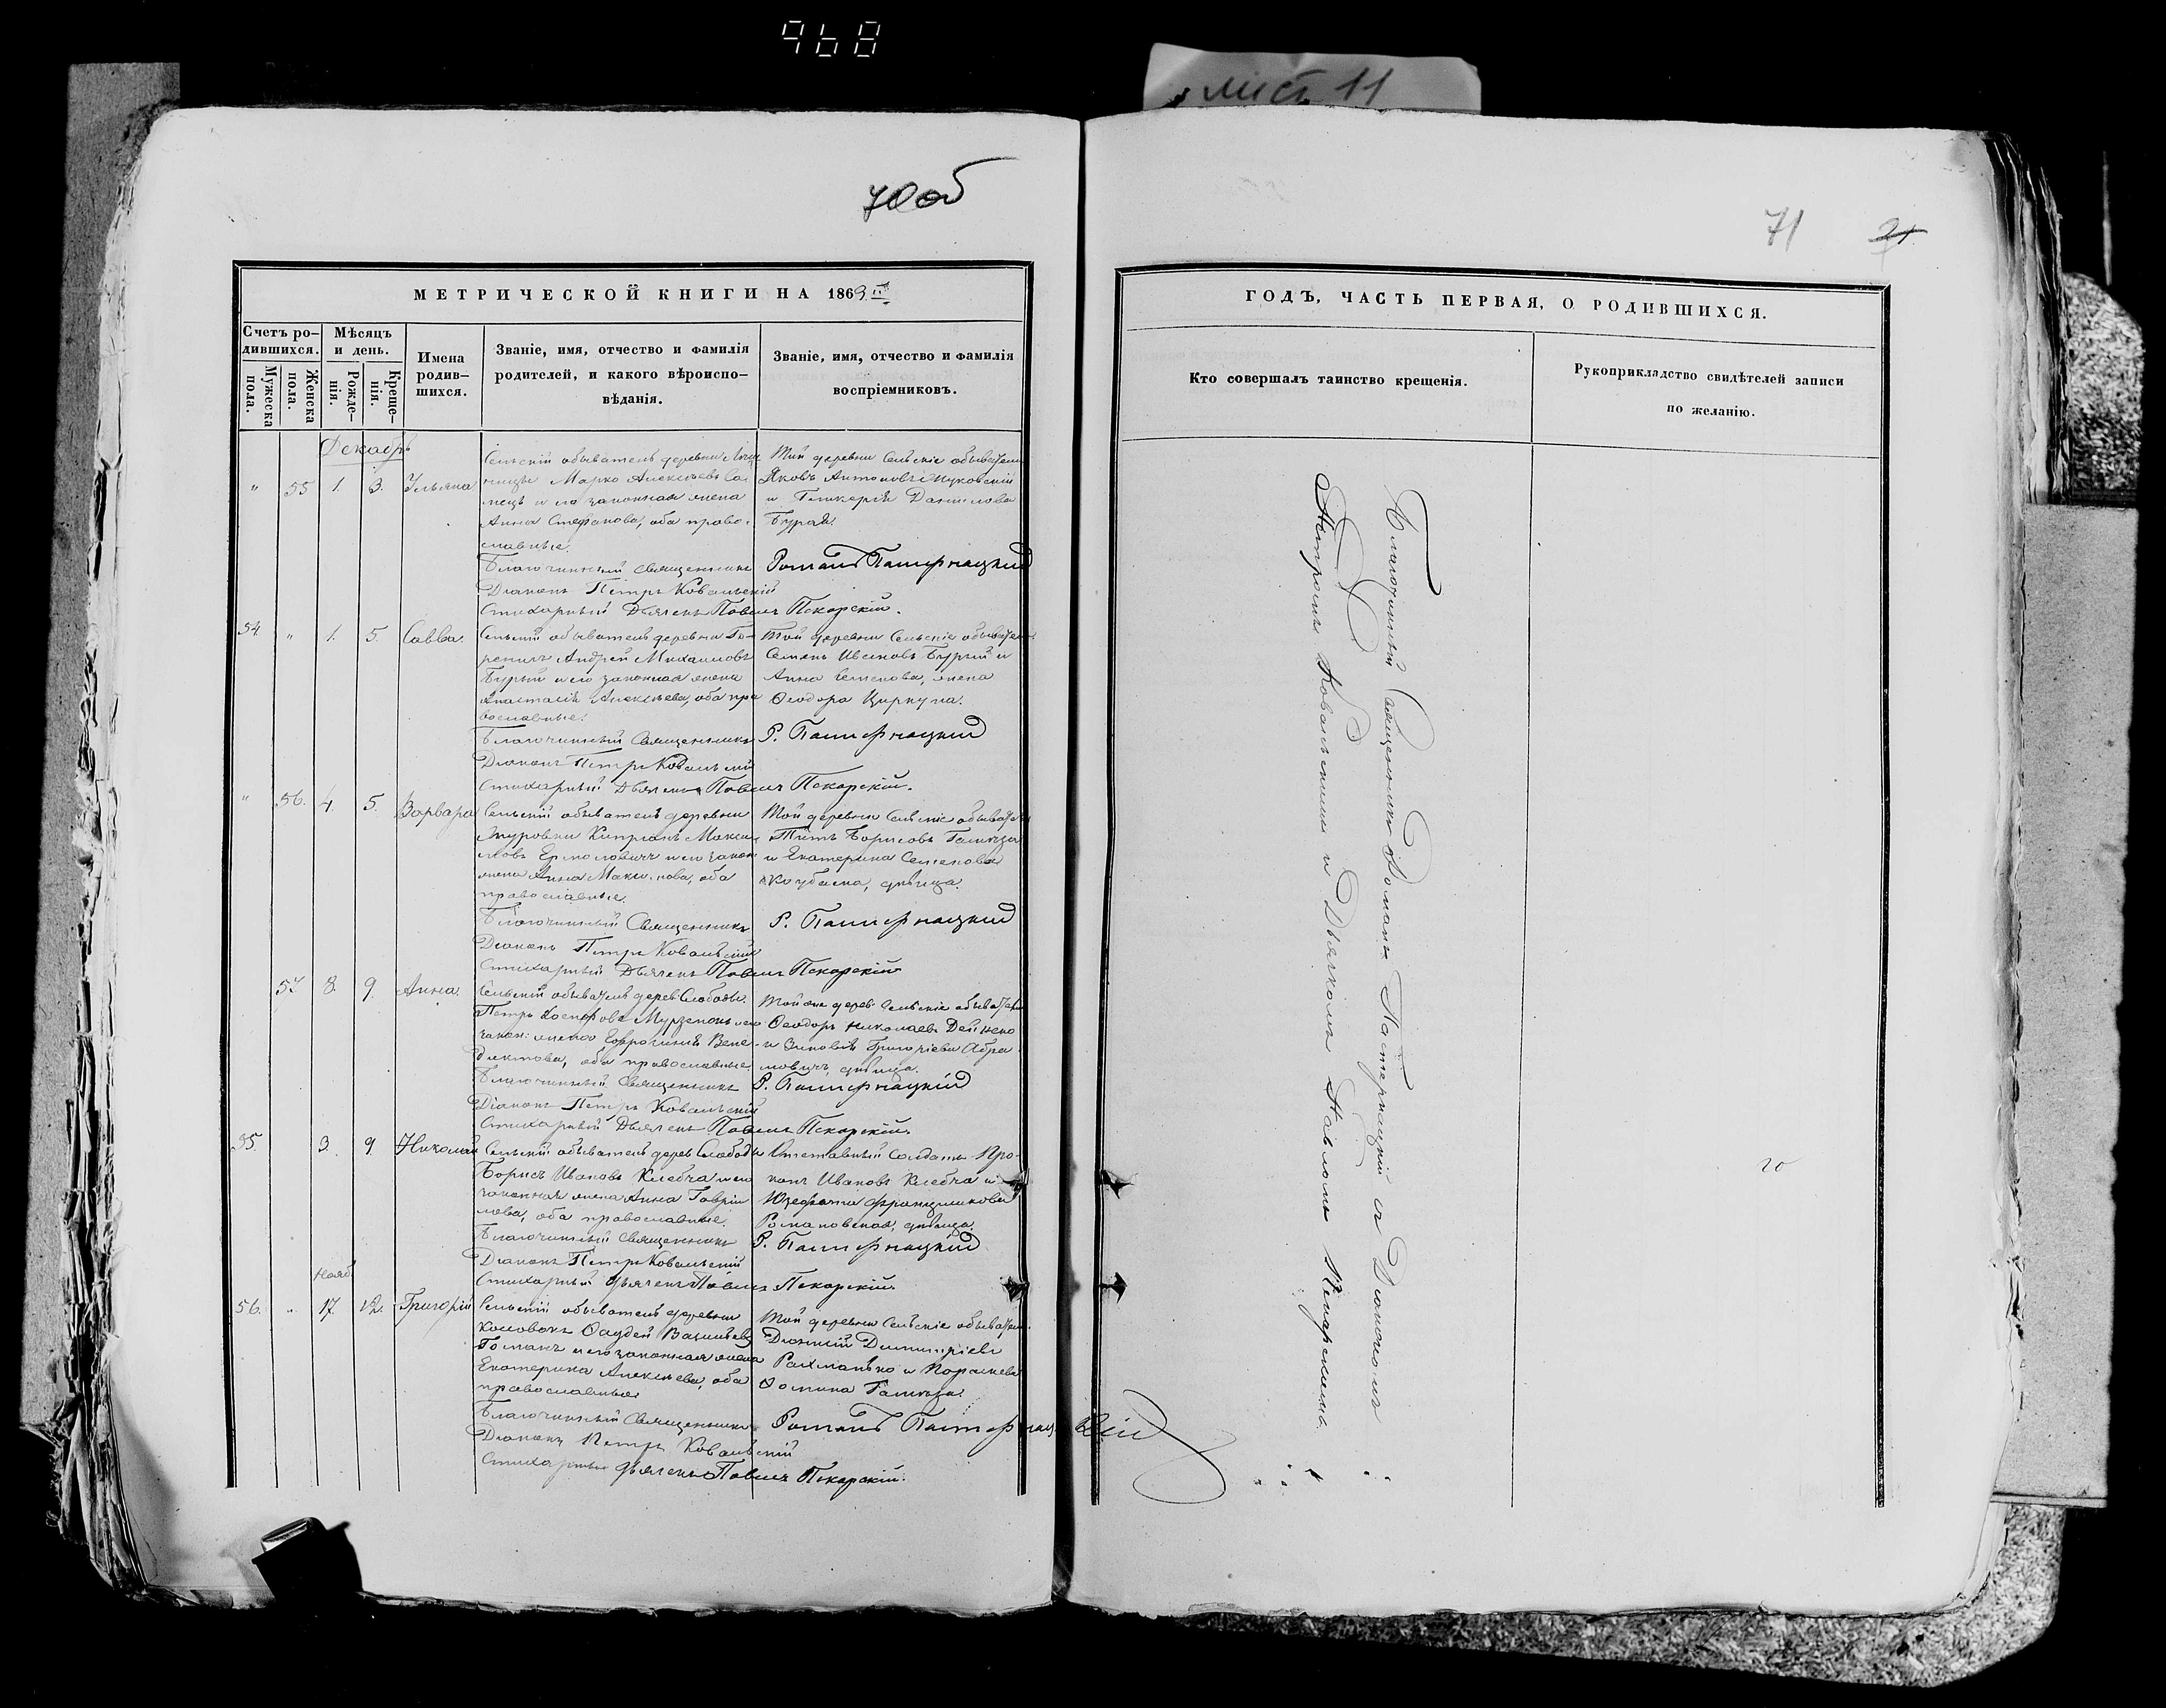 968
лист 11
70об
71
21
МЕТРИЧЕСКОЙ КНИГИ НА 1869
ГОДЪ, ЧАСТЬ ПЕРВАЯ, О РОДИВШИХСЯ.
Счетъ ро-
дившихся.
Мужеска
пола.
Женска
пола.
Мѣсяцъ
и день.
Рожде-
нія.
Креще-
нія.
Имена
родив-
шихся.
Званіе, имя, отчество и фамилія
родителей, и какого вѣроиспо-
вѣданія.
Званіе, имя, отчество и фамилія
воспріемниковъ.
Кто совершалъ таинство крещенія.
Рукоприкладство свидѣтелей записи
по желанію.
Декабрь
" 55 1. 3. Ульяна
Сельскій обыватель деревни
Марко Алексѣевъ
и его законная жена
Анна Стефанова, оба право-
славные.
Той деревни Сельскіе обыватели
Яковъ Антоновъ
и Гликерія Данилова
Бурая.
Благочинный Священникъ Романъ Пастернацкій
Діаконъ Петръ Ковальскій
Стихарный Дьячекъ Павелъ Пекарскій.
54 " 1. 5. Савва.
Сельскій обыватель деревни
Андрей Михаиловъ
Бурый и его законная жена
Анастасія Алексѣева, оба пра
вославные.
Той деревни Сельскіе обыватели
Семенъ Ивановъ Бурый и
Анна Семенова, жена
Ѳеодора Циркуна.
Благочинный Священникъ Р. Пастернацкій
Діаконъ Петръ Ковальскій
Стихарный Дьячекъ Павелъ Пекарскій.
" 56. 4. 5. Варвара
Сельскій обыватель деревни
Журовки Кипріанъ Макси
мовъ Ермоловичъ и его закон
жена Анна Максимова, оба
православные.
Той деревни Сельскіе обыватели
Титъ Борисовъ Галкуза
и Екатерина Семенова
дѣвица.
Благочинный Священникъ Р. Пастернацкій
Діаконъ Петръ Ковальскій
Стихарный Дьячекъ Павелъ Пекарскій
57 8. 9. Анна.
Сельскій обыватель дерев Слободы
Петръ Іосифовъ и его
закон: жена Евфросинія Вене-
диктова, оба православные
Той же дерев: Сельскіе обыватели
Ѳеодоръ Николаевъ Дейнеко
и Зиновія Григоріева Абра
мовичъ, дѣвица.
Благочинный Священникъ Р. Пастернацкій
Діаконъ Петръ Ковальскій
Стихарный Дьячекъ Павелъ Пекарскій.
55. 3. 9. Николай
Сельскій обыватель дерев Слободы
Борисъ Ивановъ Клебча и его
законная жена Анна Гаврии
лова, оба православные.
Отставный Солдатъ Про-
копъ Ивановъ Клебча и
Юзефата Францишкова
Романовская, дѣвица.
Благочинный Священникъ Р. Пастернацкій
Діаконъ Петръ Ковальскій
Стихарный Дьячекъ Павелъ Пекарскій.
Нояб.
56. " 17. 12. Григорій
Сельскій обыватель деревни
Ѳаддей Васильевъ
Гоманъ и его законная жена
Екатерина Алексѣева, оба
православные
Той деревни Сельскіе обыватели
Діонисій Димитріевъ
Рахманько и Параскева
Ѳомина Галкуза.
Благочинный Священникъ Романъ Пастернацкій
Діаконъ Петръ Ковальскій
Стихарный Дьячекъ Павелъ Пекарскій.
Благочинный Священникъ Романъ Пастернацкій съ Діакономъ
Петромъ Ковальскимъ и Дьячкомъ Павломъ Пекарскимъ.
20